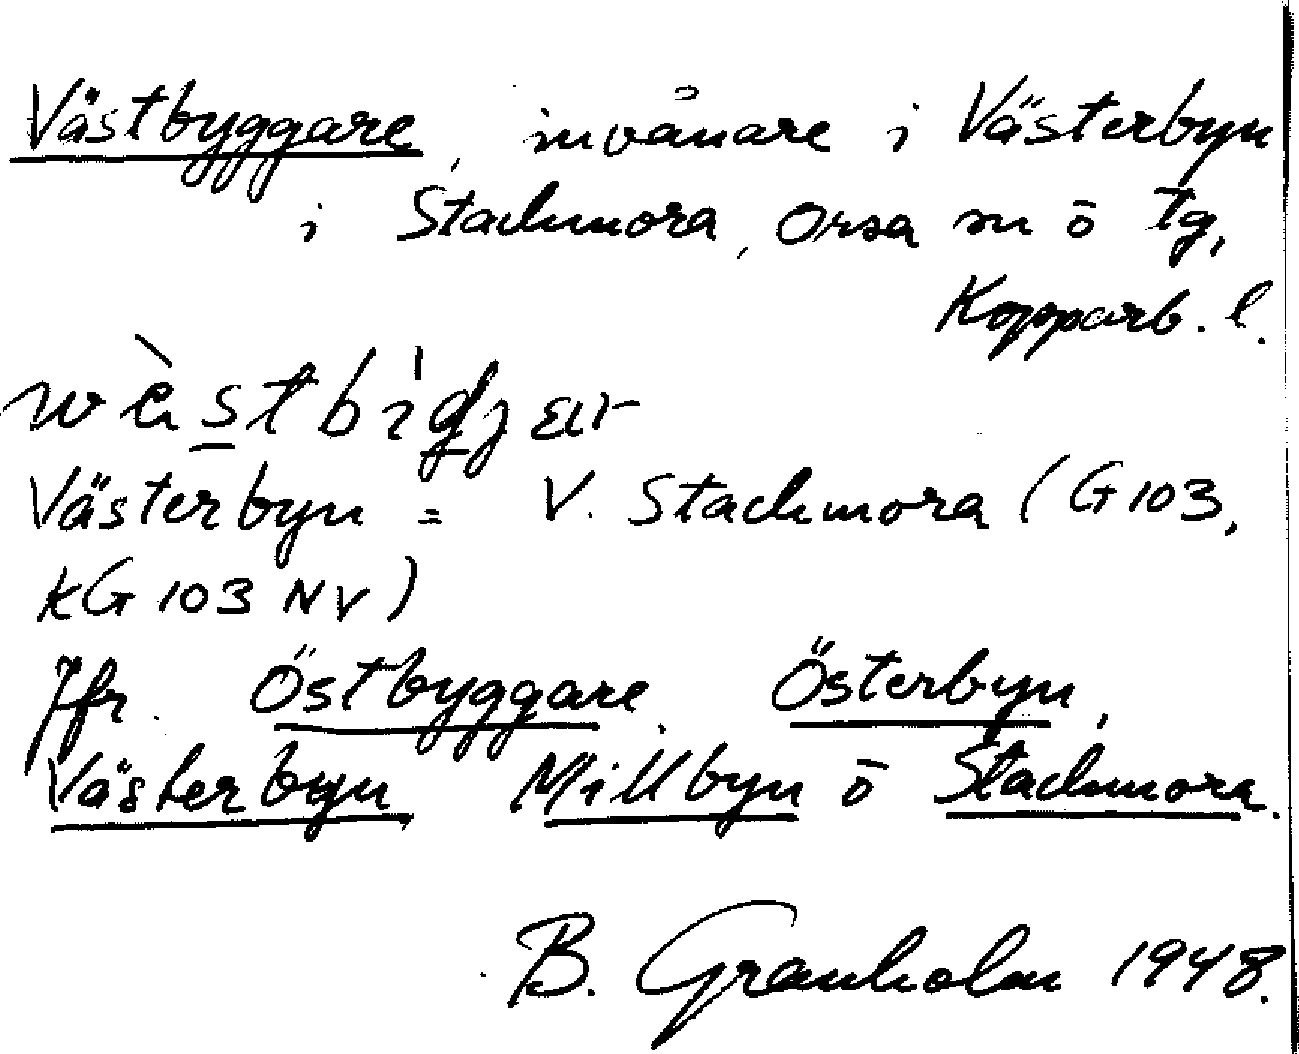 Västbyggare, invånare i Västerbyn
i Stackmora, Orsa sn o tg,
Kopparb. l.
Västerbyn = V. Stackmora (G 103,
kG 103 NV)
Jfr. Östbyggare, Österbyn,
Västerbyn, Millbyn o Stackmora.
B. Granholm 1948.